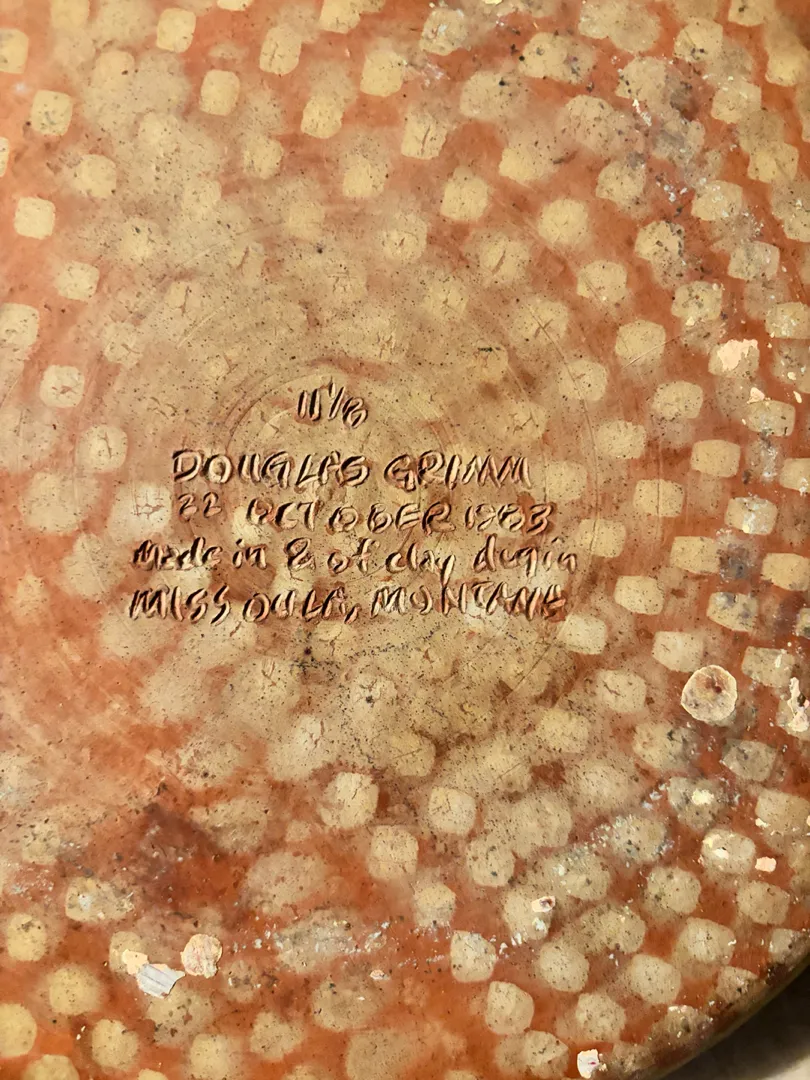 DOUGLAS GRIMM
22 OCTOBER 1983
Made in & of clay dug in
MISSOULA, MONTANA